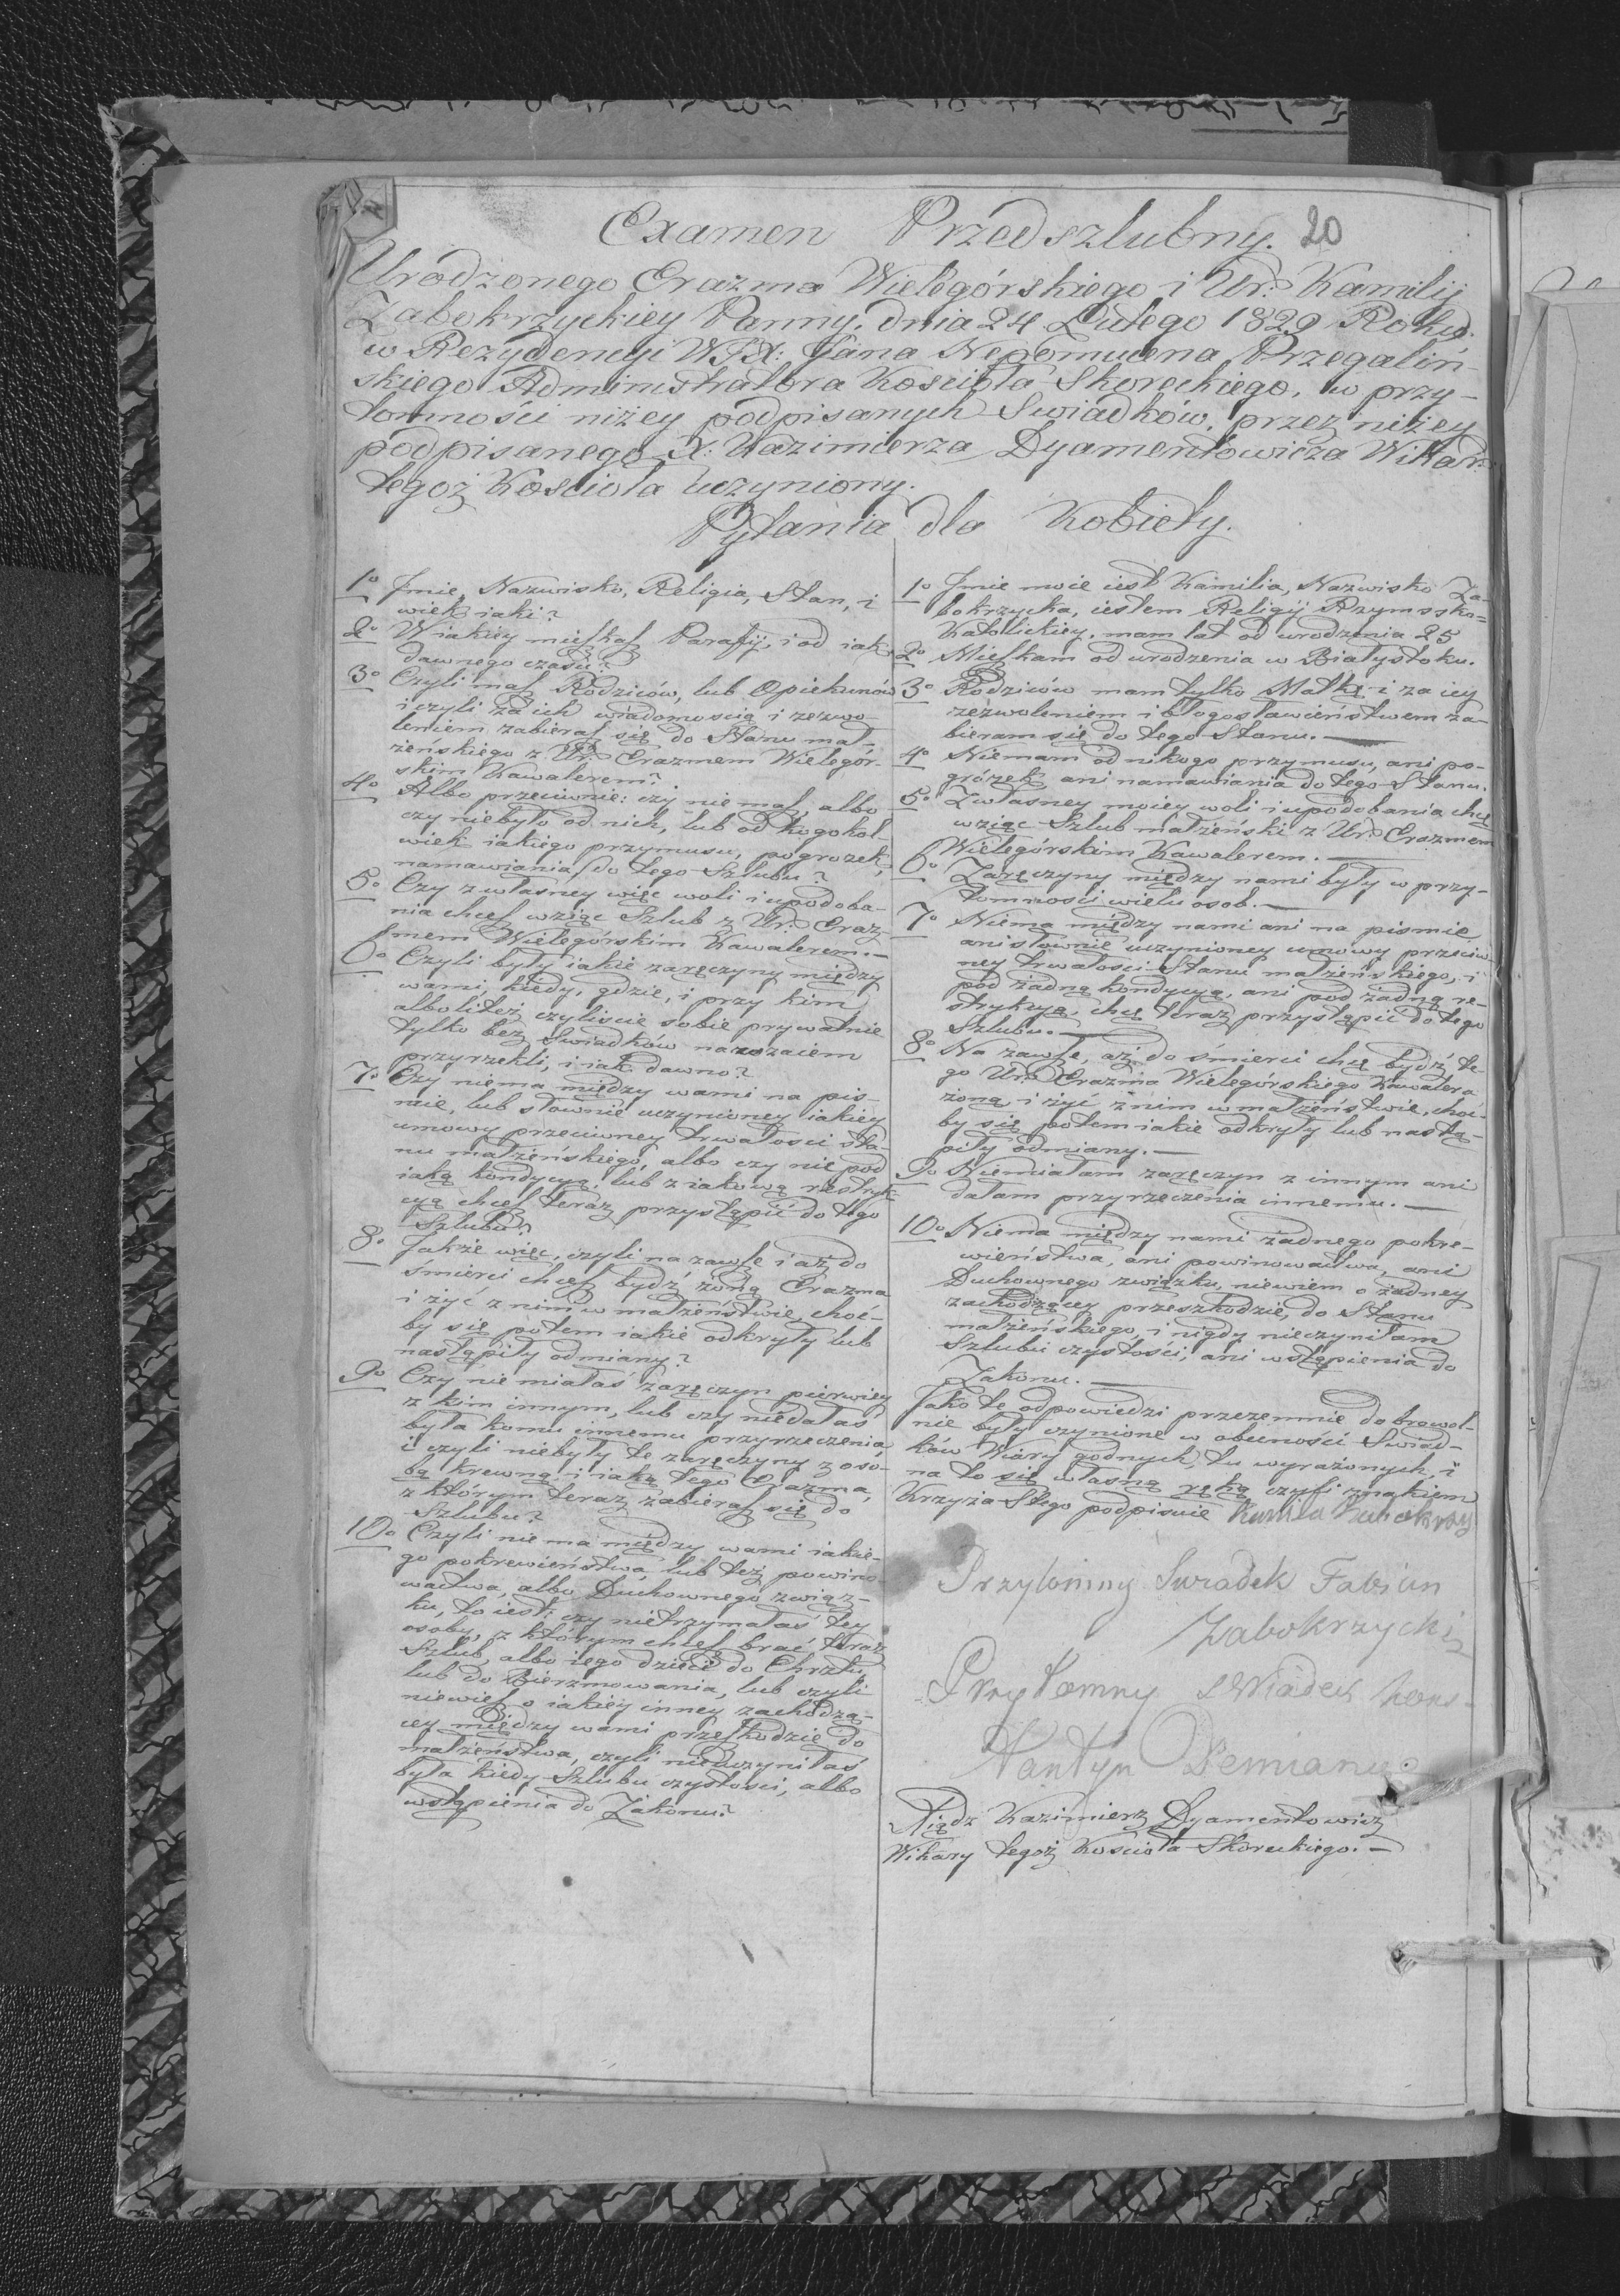 Examen Przedszlubny. 20
Urodzonego Erazma Wielegórskiego i Ur: Kamilij
Zabokrzyckiey Panny, dnia 24 Lutego 1829 Roku.
w Rezydencyi WJX: Jana Nepomucena Przegaliń-
skiego Administratora Kościoła Skoreckiego, w przy-
tomności niżey podpisanych Swiadków, przez niżey
podpisanego X: Kazimierza Dyamentowicza Wikar:
tegoż Kościoła uczyniony.
Pytania dla Kobiety.
1o Jmie, Nazwisko, Religia, Stan, i
wiek iaki?
2o W iakiey mieszkasz Parafij, i od iak
dawnego czasu?
3o Czyli masz Rodziców, lub Opiekunów
i czyli za ich wiadomością i zezwo-
leniem zabierasz się do Stanu mał-
żeńskiego z Ur: Erazmem Wielegór-
skim Kawalerem?
4o Albo przeciwnie: czy nie masz, albo
czy niebyło od nich, lub od kogokol-
wiek iakiego przymusu, pogrozek,
namawiania do tego Szlubu?
5o Czy z własney więc woli i upodoba-
nia chcesz wziąc Szlub z Ur: Eraz-
mem Wielegórskim Kawalerem.—
6o Czyli były iakie zaręczyny między
wami, kiedy, gdzie, i przy kim,
albolitéż czyliście sobie prywatnie
tylko bez Swiadków nawzaiem
przyrzekli, i iak dawno?
7o Czy niema między wami na piś-
mie, lub słownie uczynioney iakiey
umowy przeciwney trwałości sta-
nu małżeńskiego, albo czy nie pod
iaką kondycyą, lub z iakową restryk-
cyą chcesz teraz przystąpić do tego
Szlubu?
8o Jakże więc, czyli na zawsze i aż do
śmierci chcesz bydź żoną Erazma
i żyć z nim w małżeństwie, choć-
by się potem iakie odkryły lub
nastąpiły odmiany?
9o Czy nie miałaś zaręczyn pierwiey
z kim innym, lub czy niedałaś
była komu innemu przyrzeczenia
i czyli niebyły te zaręczyny z oso-
bą krewną iaką tego Erazma,
z którym teraz zabierasz się do
Szlubu?
10o Czyli nie ma między wami iakie-
go pokrewieństwa, lub też powino-
wactwa, albo Duchownego związ-
ku, to iest: czy nietrzymałaś tey
osoby, z którym chcesz brać teraz
Szlub, albo iego dzieci do Chrztu,
lub do Bierzmowania, lub czyli
niewiesz o iakiey inney zachodzą-
cey między wami przeszkodzie do
małżeństwa, czyli nieuczyniłaś
była kiedy Szlubu czystości, albo
wstąpienia do Zakonu?
1o Jmie moie iest Kamilia, Nazwisko Za-
bokrzycka, iestem Religij Rzymsko=
Katolickiey, mam lat od urodzenia 25
2o Mieszkam od urodzenia w Białystoku.
3o Rodziców mam tylko Matkę i za iey
zezwoleniem i błogosławieństwem za-
bieram się do tego Stanu.—
4o Niemam od nikogo przymusu, ani po-
grózek ani namawiania do tego Stanu.
5o Z własney moiey woli i upodobania chcę
wziąc Szlub małżeński z Ur: Erazmem
Wielegórskim Kawalerem.—
6o Zaręczyny między nami były w przy-
tomności wielu osob.—
7o Niema między nami ani na pismie
ani słownie uczynioney umowy przeciw-
ney trwałości Stanu małżeńskiego, i
pod żadną kondycyą, ani pod żadną re-
strykcyą, chcę teraz przystąpić do tego
Szlubu.—
8o Na zawsze, aż do śmierci chcę bydź te-
go Ur: Erazma Wielegórskiego Kawalera
żoną, i żyć z nim w małżeństwie, choć-
by się potem iakie odkryły lub nastą-
piły odmiany.—
9o Niemiałam zaręczyn z innym ani
dałam przyrzeczenia innemu.—
10o Niema między nami żadnego pokre-
wieństwa, ani powinowactwa, ani
Duchownego związku, niewiem o żadney
zachodzącey przeszkodzie, do Stanu
małżeńskiego, i nigdy nieczyniłam
Szlubu czystości, ani wstąpienia do
Zakonu.—
Jako te odpowiedzi przezemnie dobrowol-
nie były czynione w obecności Swiad-
ków Wiary godnych, tu wyrażonych, i
na to się własną ręką czyli znakiem
Krzyża Stego podpisuie Kamila
Przytomny Swiadek Fabian
Zabokrzycki
Przytomny sWiadek Kons-
tantyn
Xiądz Kazimierz Dyamentowicz
Wikary tegoż Kościoła Skoreckiego.—